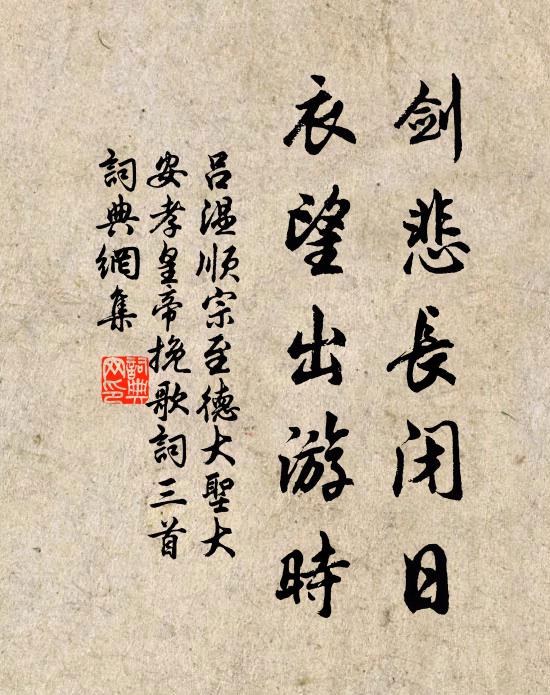 劍悲長閉日
衣望出游時
吕溫順宗至德大聖大
安孝皇帝挽歌詞三首
詞典網集
詞典網印